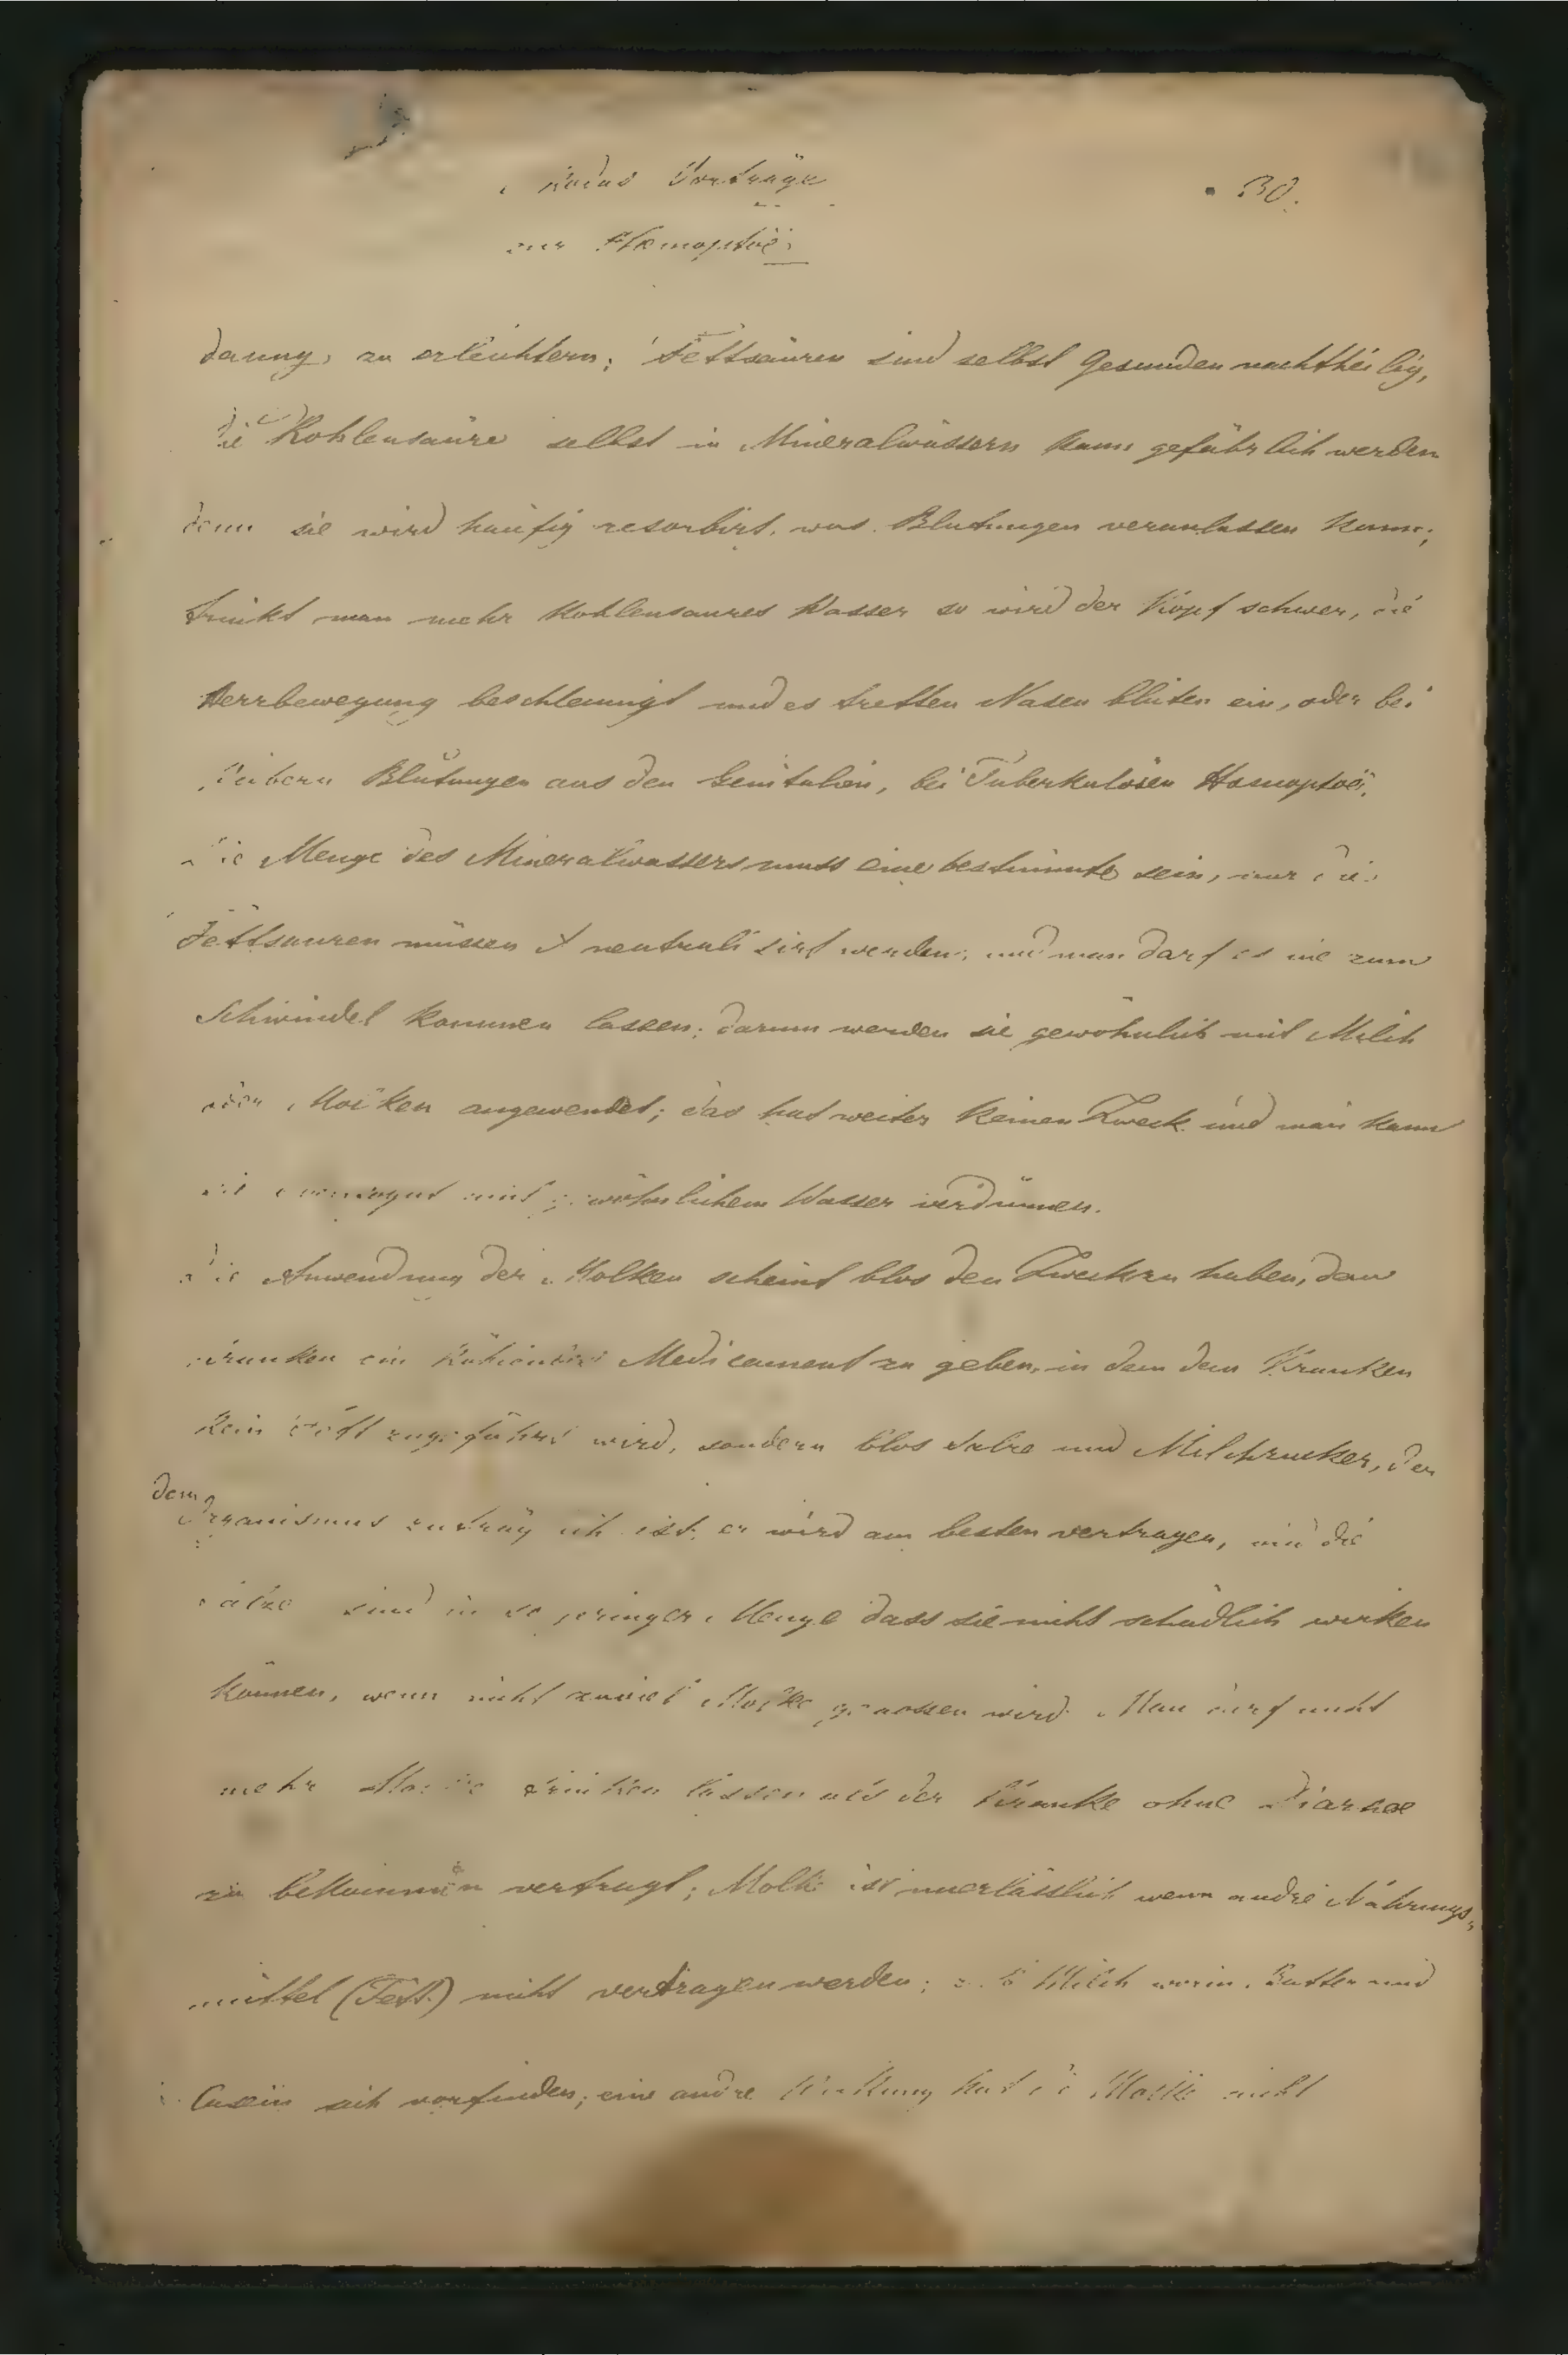 Vorträge
30.
Hæmoptöe.
dauung, zu erleichtern; Fettsäuren sind selbst Gesunden nachtheilig,
die Kohlensäure selbst in Mineralwässern kann gefährlich werden
denn sie wird häufig resorbirt, was Blutungen veranlassen kann;
trinkt man mehr kohlensaures Wasser so wird der Kopf schwer, die
Herzbewegung beschleunigt und es tretten Nasen bluten ein, oder bei
Weibern Blutungen aus den Genitalien, bei Tuberkulösen Hæmoptöe.
Die Menge des Mineralwassers muss eine bestimmte sein, nur die
Fettsäuren müssen neutralisirt werden; und man darf es nie zum
Schwindel kommen lassen; darum werden sie gewöhnlich mit Milch
oder Molken angewendet; das hat weiter keinen Zweck und man kann
mit gewöhnlichem Wasser verdünnen.
Die Anwendung der Molken scheint blos den Zweck zu haben, dem
Kranken ein Medicament zu geben, in dem dem Kranken
kein Fett zugeführt wird, sondern blos Salze und Milchzucker, der
dem
Organismus zuträglich ist; er wird am besten vertragen, und die
Salze sind in so geringer Menge dass sie nicht schädlich wirken
können, wenn nicht zuviel Molke genossen wird. Man darf nicht
mehr Molke trinken lassen als der Kranke ohne Diarhoe
zu bekommen vertragt; Molke ist unerlässlich wenn andre Nahrungs-
mittel (Fett) nicht vertragen werden; z. B Milch worin Butter und
Casein sich vorfinden; eine andre Wirkung hat die Molke nicht